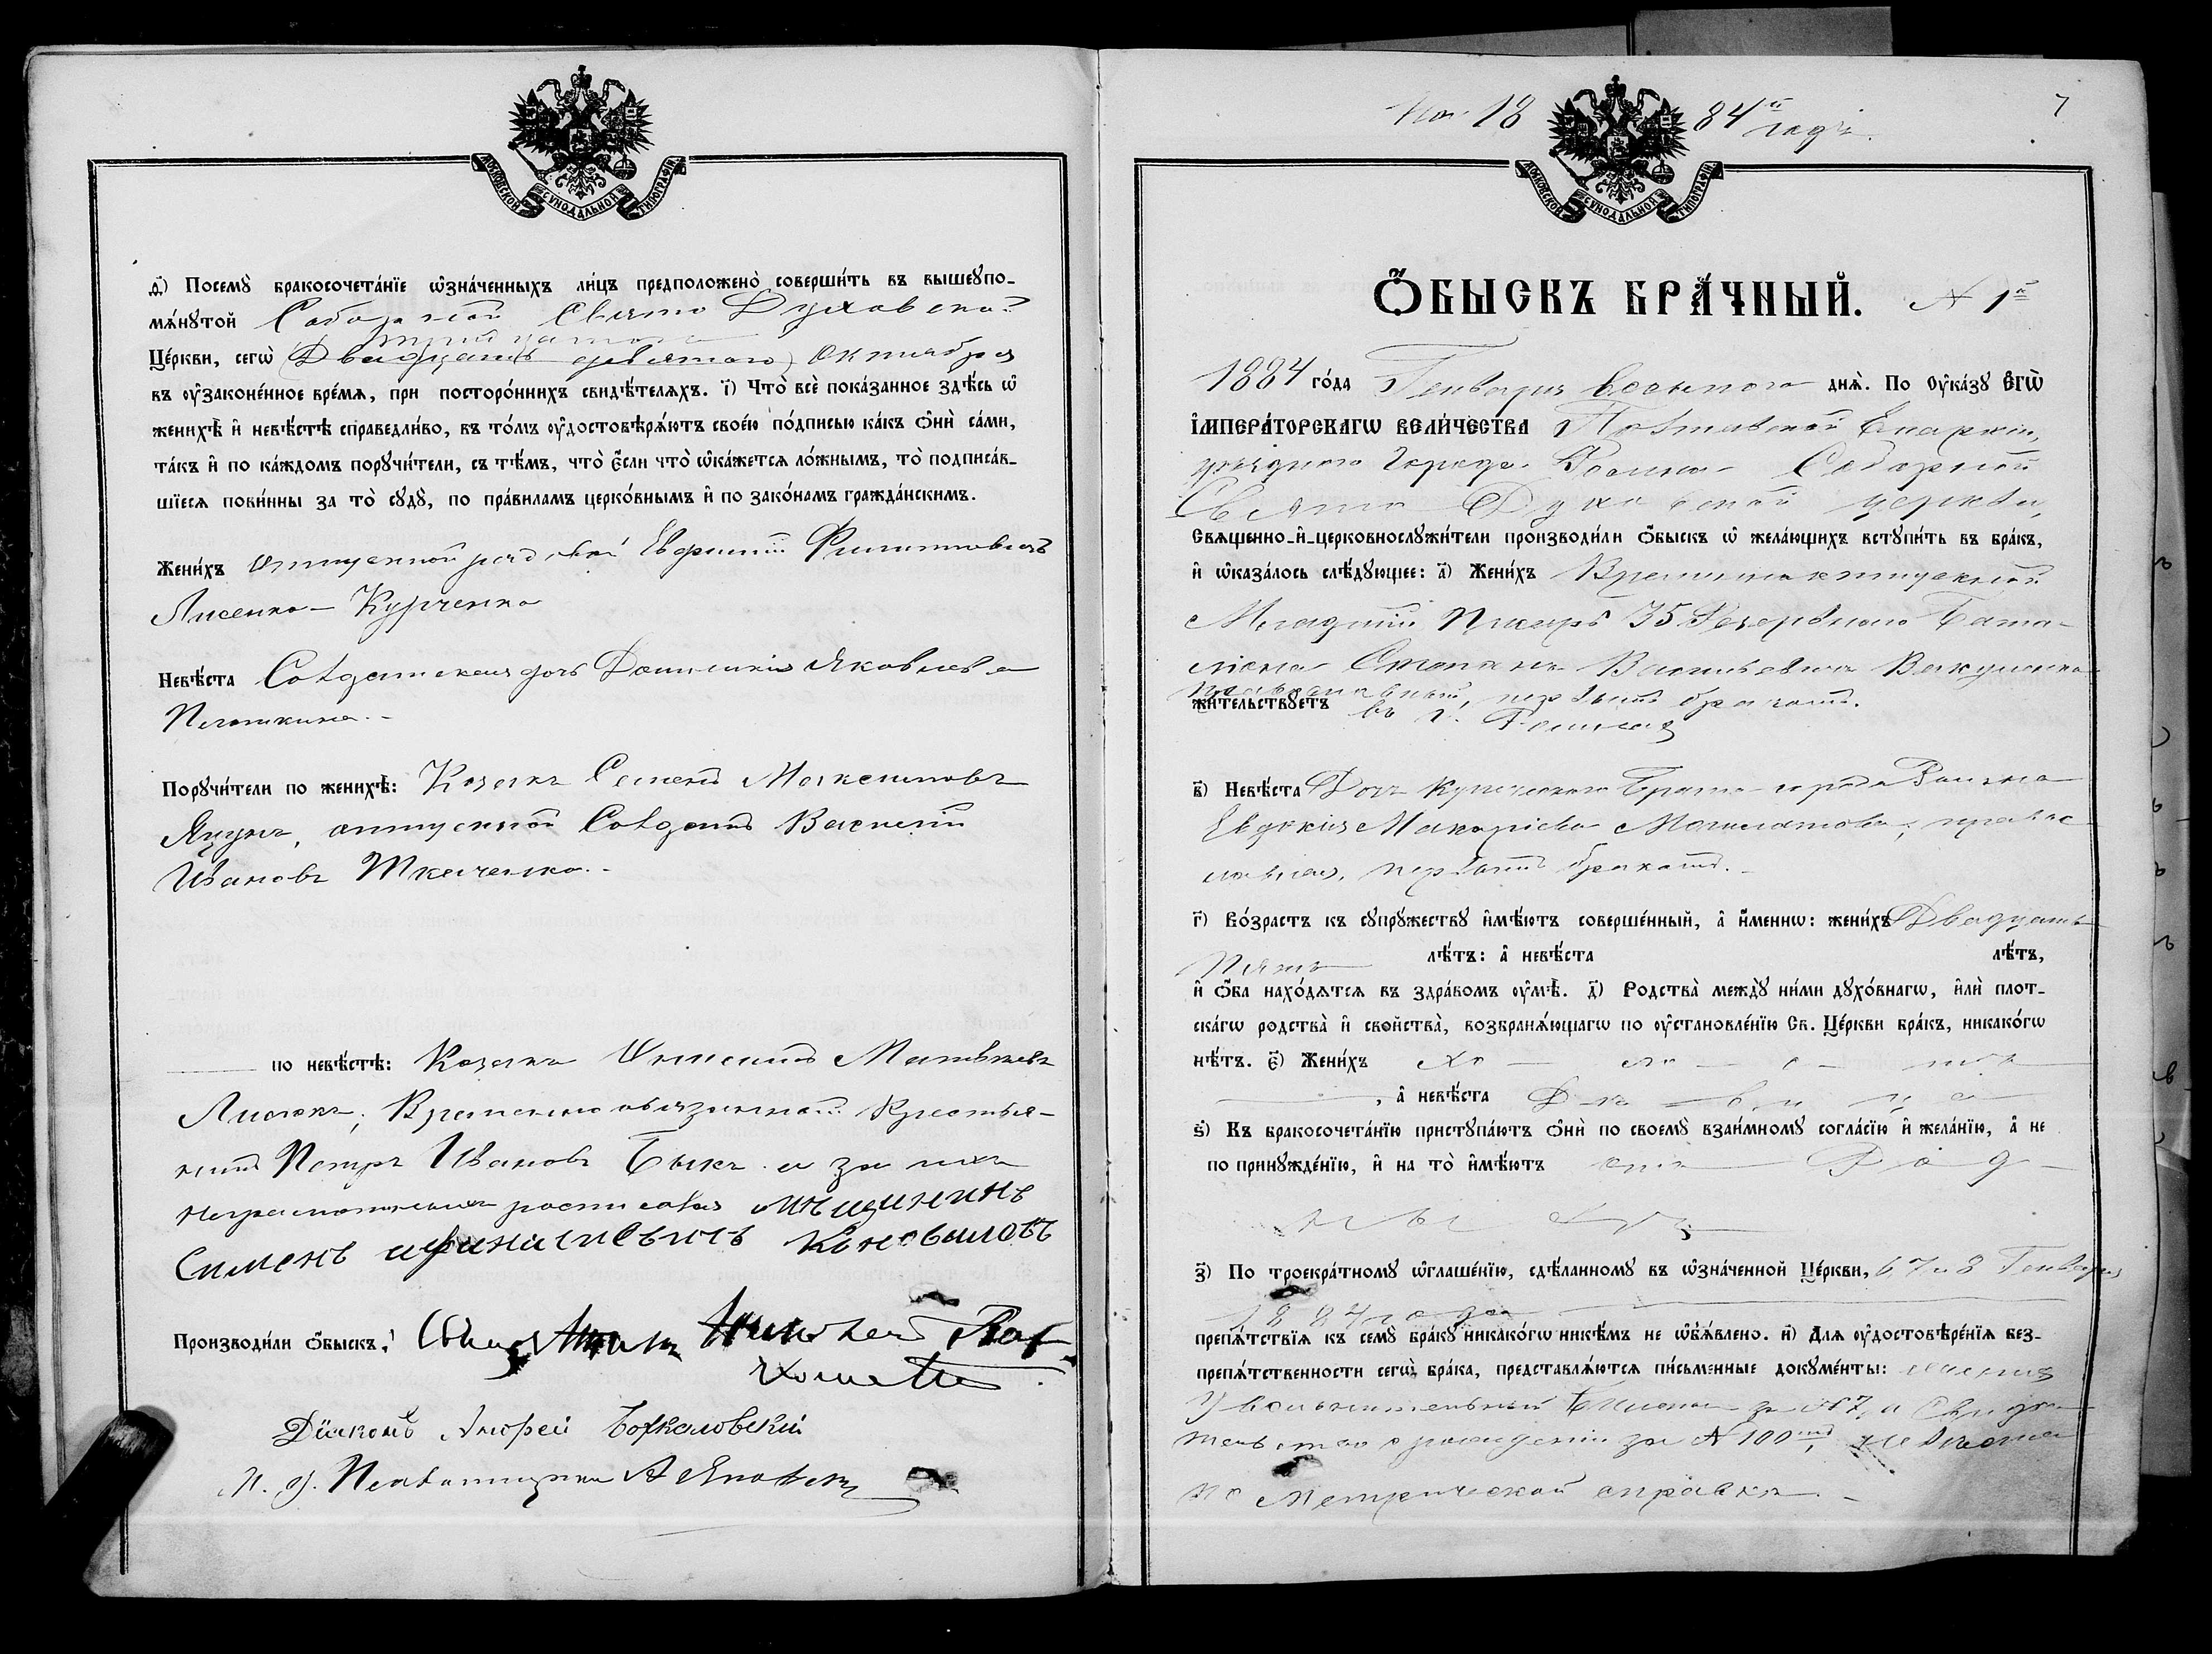 МОСКОВСКОЙ СѴНОДАЛЬНОЙ ТИПОГРАФІИ
д҃) Посемꙋ̀ бракосочета́нїе ѡ҆зна́ченныхъ ли́цъ предположено̀ соверши́ть въ вышеꙋпо-
мѧ́нꙋтой Соборной Свято Духовской
тридцатого
Це́ркви, сегѡ̀ (Двадцать девятого) Октября
въ ᲂу҆законе́нное вре́мѧ, при посторо́ннихъ свидѣ́телѧхъ. і҃) Что̀ всѐ пока́занное здѣ́сь ѡ҆
женихѣ̀ и҆ невѣ́стѣ справедли́во, въ то́мъ ᲂу҆достовѣрѧ́ютъ свое́ю по́дписью ка́къ ѻ҆нѝ са́ми,
та́къ и҆ по ка́ждомъ порꙋчи́тели, съ тѣ́мъ, что̀ є҆́сли что̀ ѡ҆ка́жетсѧ ло́жнымъ, то̀ подписа́в-
шїесѧ пови́нны за то̀ сꙋдꙋ̀, по пра́виламъ церко́внымъ и҆ по зако́намъ гражда́нскимъ.
Жени́хъ Отпускной рядовой Евфимий Филипповичъ
Лисенко - Курченко
Невѣ́ста Солдатская дочь Домникия Яковлева
Порꙋчи́тели по женихѣ̀: Козакъ Семенъ Максимовъ
Яцунъ, отпускной Солдатъ Василий
Ивановъ Ткаченко.
по невѣ́стѣ: Козакъ Матвѣевъ
Временно обязанный Крестья-
нинъ Петръ Ивановъ Быкъ а за ихъ
неграмотныхъ росписался мѣщининъ
Сименъ Коноваловъ
Производи́ли ѻ҆́быскъ: Николай
Діяконъ Андрей
И. д. Псаломщика
На 18 84й годъ. 7
МОСКОВСКОЙ СѴНОДАЛЬНОЙ ТИПОГРАФІИ
Ѻ҆́БЫСКЪ БРА́ЧНЫЙ. № 1й
1884 го́да Генваря восьмого днѧ̀. По Оу҆ка́зꙋ Є҆ГѠ̀
І҆МПЕРА́ТОРСКАГѠ ВЕЛИ́ЧЕСТВА Полтавской Епархіи,
уездного Города Ромна Соборной
Свято Духовской церкви,
Свѧщенно-и҆-церковнослꙋжи́тели производи́ли ѻ҆́быскъ ѡ҆ жела́ющихъ встꙋпи́ть въ бра́къ,
и҆ ѡ҆каза́лось слѣ́дꙋющее: а҃) Жени́хъ Временно отпускной
Младший Писарь 35 Резервного Бата-
лиона Стефанъ Васильевичъ Вакуленко
православный, первымъ бракомъ.
жи́тельствꙋетъ въ г. Ромнахъ
в҃) Невѣ́ста Дочь Купеческого Брата города Ромна
Евдокия Макариева православ
ная, первымъ бракомъ.
г҃) Во́зрастъ къ сꙋпрꙋ́жествꙋ и҆мѣ́ютъ соверше́нный, а҆ и҆́менно: жени́хъ Двадцать
пять лѣ́тъ: а҆ невѣ́ста лѣ́тъ,
и҆ ѻ҆́ба нахо́дѧтсѧ въ здра́вомъ ᲂу҆мѣ̀. д҃) Родства̀ междꙋ̀ ни́ми дꙋхо́внагѡ, и҆лѝ плот-
ска́гѡ родства̀ и҆ свойства̀, возбранѧ́ющагѡ по ᲂу҆становле́нїю Св. Це́ркви бра́къ, никако́гѡ
нѣ́тъ. є҃) Жени́хъ Хо - ло - с - тъ
, а҆ невѣ́ста Дѣ - в и ц а
ѕ҃) Къ бракосочета́нїю пристꙋпа́ютъ ѻ҆нѝ по своемꙋ̀ взаи́мномꙋ согла́сїю и҆ жела́нїю, а҆ не
по принꙋжде́нїю, и҆ на то̀ и҆мѣ́ютъ
з҃) По троекра́тномꙋ ѡ҆глаше́нїю, сдѣ́ланномꙋ въ ѡ҆зна́ченной Це́ркви, 6, 7 и 8 Генваря
1884 года
препѧ́тствїѧ къ семꙋ̀ бра́кꙋ никако́гѡ никѣ́мъ не ѡ҆б̾ѧ́влено. и҃) Длѧ ᲂу҆достовѣре́нїѧ без-
препѧ́тственности сегѡ̀ бра́ка, представлѧ́ютсѧ пи́сьменные докꙋме́нты:
Увольнительный Билетъ за №87, и Свидѣ-
тельство о рождении за № 100мъ,
по Метрической справкѣ.